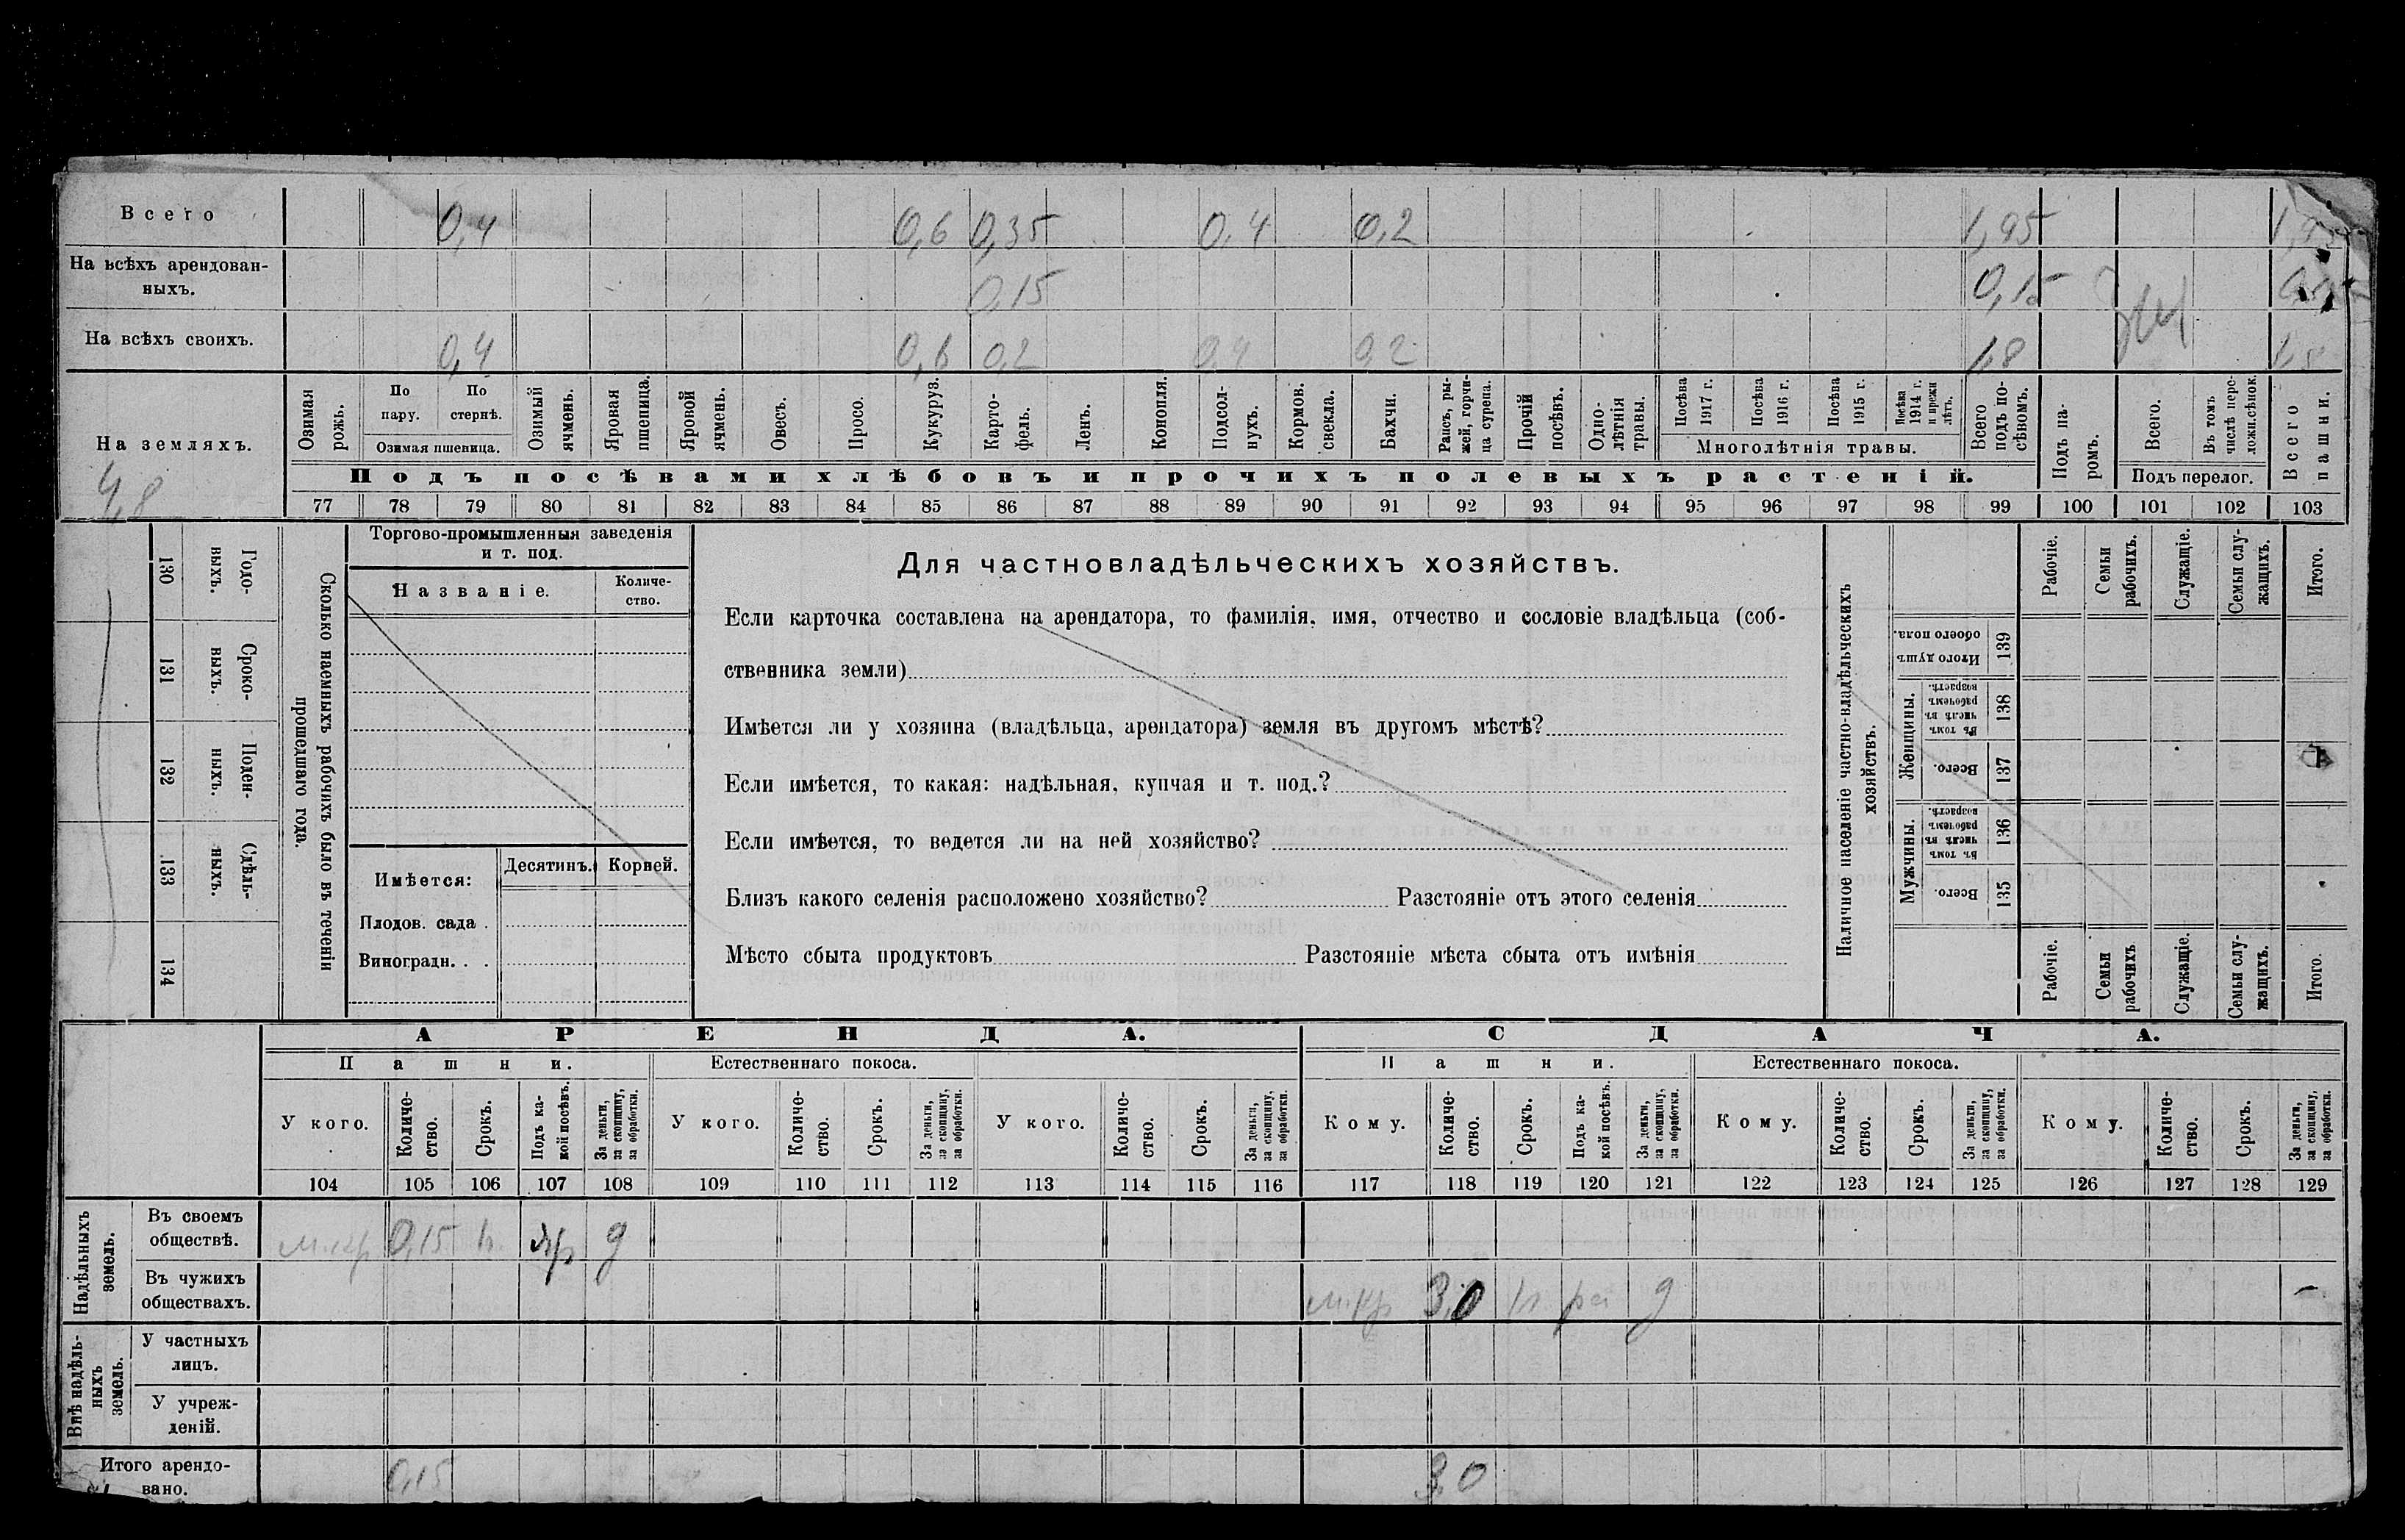 Всего 0,4 0,6 0,35 0,4 0,2 1,95
На всѣхъ арендован-
ныхъ. 0,15 0,15
На всѣхъ своихъ. 0,4 0,6 0,2 0,4 0,2 1,8 1,8
На земляхъ.
4,8
Озимая рожь.
По пару.
По стернѣ.
Озимая пшеница.
Озимый ячмень.
Яровая пшеница.
Яровой ячмень.
Овесъ.
Просо.
Кукуруз.
Карто-
фель.
Ленъ.
Конопля.
Подсол-
нухъ.
Кормов. свекла.
Бахчи.
Рапсъ, ры-
жей, горчи-
ца сурепа.
Прочій посѣвъ.
Одно-
лѣтнія травы.
Посѣва 1917 г.
Посѣва 1916 г.
Посѣва 1915 г.
Посѣва 1914 г. и прежн лѣтъ.
Многолѣтнія травы.
Всего подъ по-
сѣвомъ.
Подъ па-
ромъ.
Всего.
Въ томъ числѣ пере-
ложн.сѣнок.
Подъ перелог.
Всего пашни.
Подъ посѣвами хлѣбовъ и прочихъ полевыхъ растеній.
77 78 79 80 81 82 83 84 85 86 87 88 89 90 91 92 93 94 95 96 97 98 99 100 101 102 103
130 Годо-
выхъ.
131 Сроко-
выхъ.
132 Поден-
ныхъ.
133 Сдѣль-
ныхъ.
134
Сколько наемныхъ рабочихъ было въ теченіи
прошедшаго года.
Торгово-промышленныя заведенія
и т. под.
Названіе.
Количе-
ство.
Имѣется:
Десятинъ. Корней.
Плодов. сада .
Виноградн. . .
Для частновладѣльческихъ хозяйствъ.
Если карточка составлена на арендатора, то фамилія, имя, отчество и сословіе владѣльца (соб-
ственника земли)
Имѣется ли у хозяина (владѣльца, арендатора) земля въ другомъ мѣстѣ?
Если имѣется, то какая: надѣльная, купчая и т. под.?
Если имѣется, то ведется ли на ней хозяйство?
Близъ какого селенія расположено хозяйство? Разстояніе отъ этого селенія
Мѣсто сбыта продуктовъ Разстояніе мѣста сбыта отъ имѣнія
Наличное населеніе частно-владѣльческихъ
хозяйствъ.
Рабочіе.
Семьи рабочихъ.
Служащіе.
Семьи слу-
жащихъ.
Итого.
Итого душъ обоего пола. 139
Женщины.
Въ томъ числѣ въ рабочемъ возрастѣ. 138
Всего. 137
Мужчины.
Въ томъ числѣ въ рабочемъ возрастѣ. 136
Всего. 135
Рабочіе.
Семьи рабочихъ
Служащіе.
Семьи слу-
жащихъ.
Итого.
АРЕНДА. СДАЧА.
Пашни. Естественнаго покоса. Пашни. Естественнаго покоса.
У кого.
Количе-
ство.
Срокъ.
Подъ ка-
кой посѣвъ.
За деньги, за скопщину, за обработки.
У кого.
Количе-
ство.
Срокъ.
За деньги, за скопщину, за обработки.
У кого.
Количе-
ство.
Срокъ.
За деньги, за скопщину, за обработки.
Кому.
Количе-
ство.
Срокъ.
Подъ ка-
кой посѣвъ.
За деньги, за скопщину, за обработки.
Кому.
Количе-
ство.
Срокъ.
За деньги, за скопщину, за обработки.
Кому.
Количе-
ство.
Срокъ.
За деньги, за скопщину, за обработки.
104 105 106 107 108 109 110 111 112 113 114 115 116 117 118 119 120 121 122 123 124 125 126 127 128 129
Надѣльныхъ
земель.
Въ своемъ
обществѣ. м.кр 0,15 яр д
Въ чужихъ
обществахъ. м.кр 3,0 д –
Внѣ надѣль-
ныхъ
земель.
У частныхъ
лицъ.
У учреж-
деній.
Итого арендо-
вано. 0,15 3,0